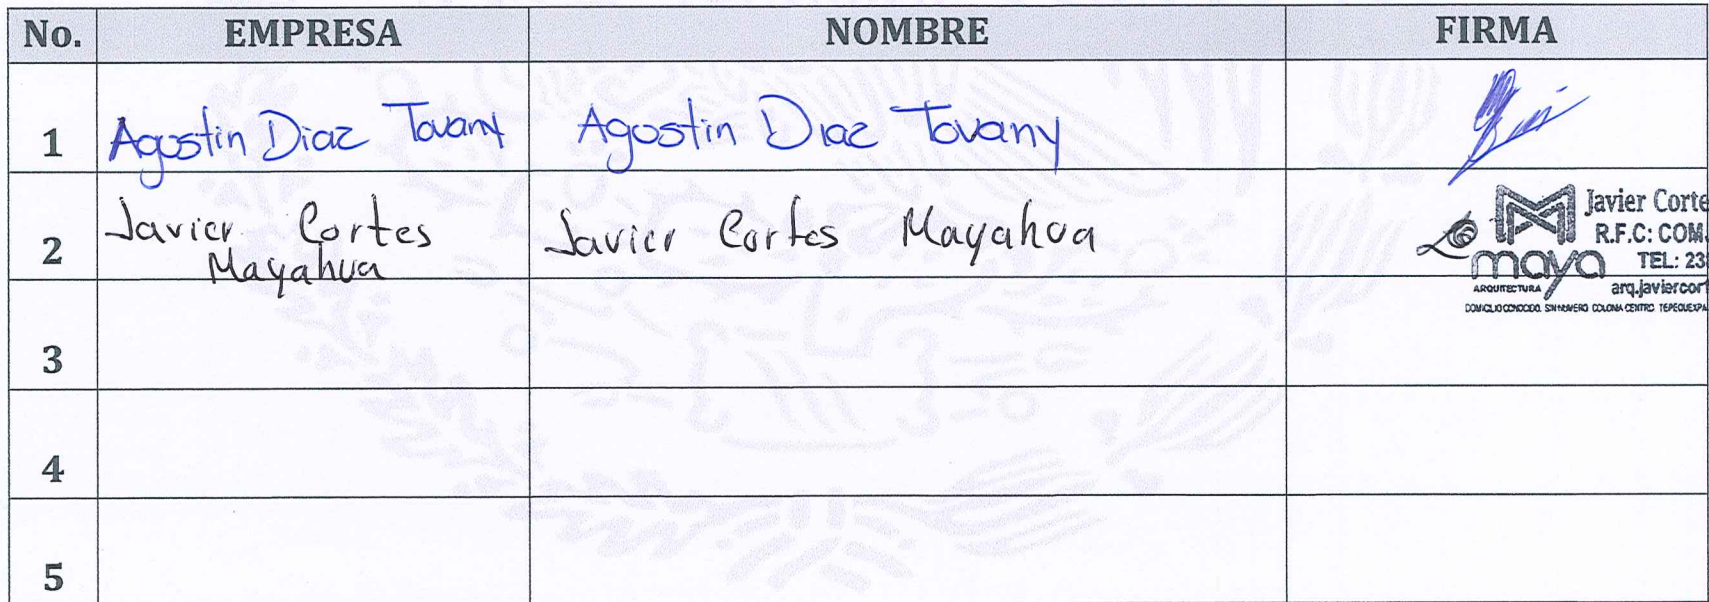 No. EMPRESA NOMBRE FIRMA
1 Agostin Diaz Tovany Agostin Diaz Tovany
2 Javier Cortes Mayahua Javier Cortes Mayahua
Javier Corte
R.F.C: COM
TEL: 23
maya
ARQUITECTURA
arq.javiercort
DOMICILIO CONOCIDO. SIN NUMERO COLONIA CENTRO TEPEQUEXPA
3
4
5